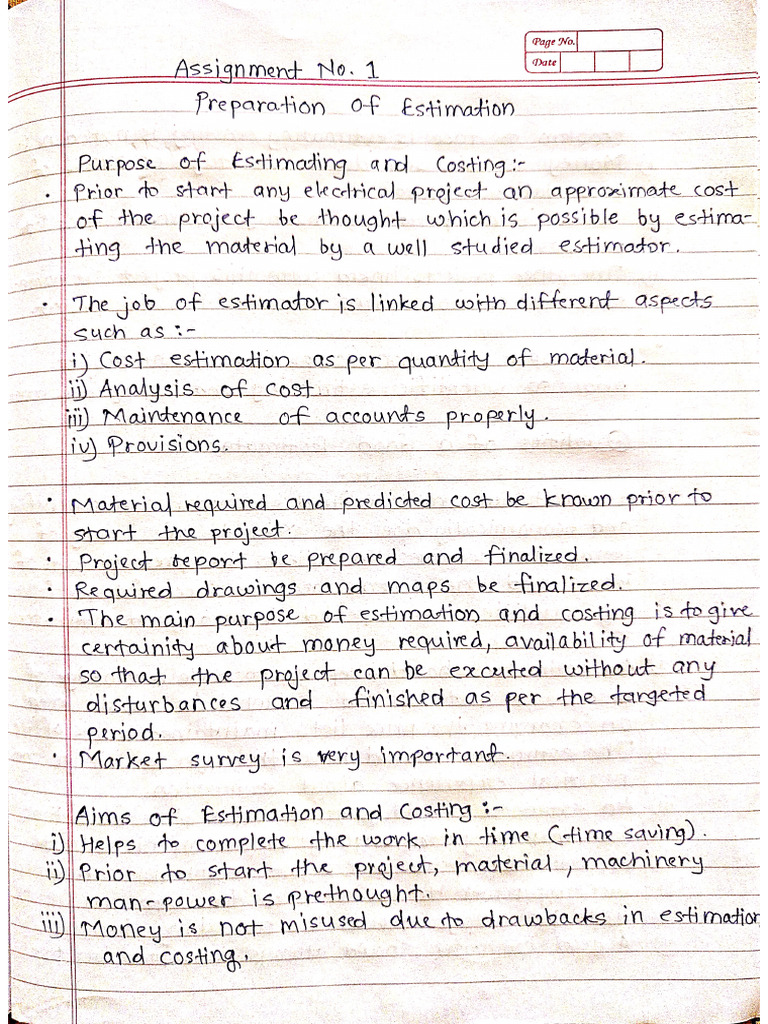 Page No.
Date
Assignment No. 1
Preparation of Estimation
Purpose of Estimading and Costing:-
• Prior to start any electrical project an approximate cost
of the project be thought which is possible by estima-
ting the material by a well studied estimator.
• The job of estimator is linked with different aspects
such as :-
i) Cost estimation as per quantity of material.
ii) Analysis of cost
iii) Maintenance of accounts properly.
iv) Provisions.
• Material required and predicted cost be known prior to
start the project.
• Project report be prepared and finalized.
• Required drawings and maps be finalized.
• The main purpose of estimation and costing is to give
certainity about money required, availability of material
so that the project can be excuted without any
disturbances and finished as per the targeted
period.
• Market survey is very important.
Aims of Estimation and Costing :-
i) Helps to complete the work in time (time saving).
ii) Prior to start the project, material, machinery
man-power is prethought.
iii) Money is not misused due to drawbacks in estimation
and costing.